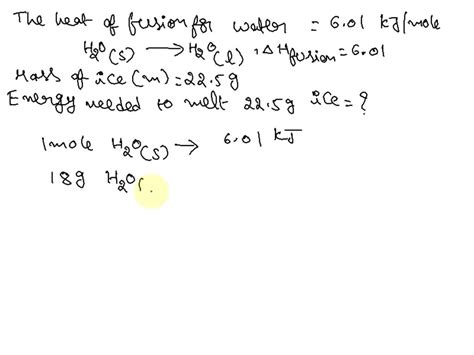 The heat of fusion for water = 6.01 kJ/mole
H2O(s) → H2O(l), ΔHfusion = 6.01
Mass of ice (m) = 22.5g
Energy needed to melt 22.5g ice = ?
1mole H2O(s) → 6.01 kJ
18g H2O(